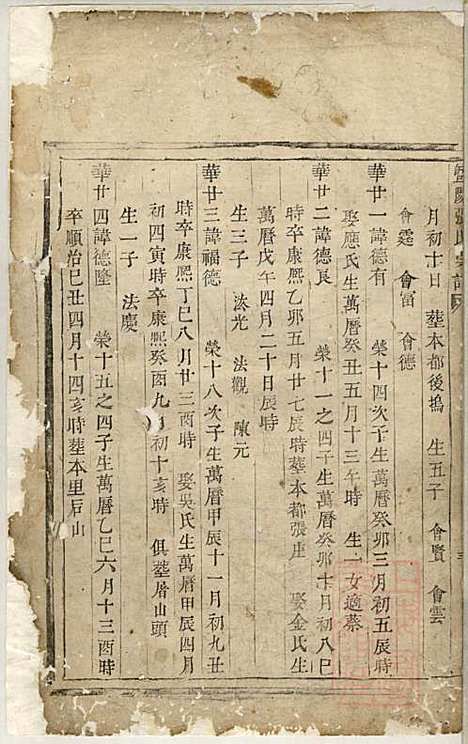 月初十日 塟本都後塢 生五子 會賢 會雲
會霆 會富 會德
華廿一諱德有 榮十四次子生萬曆癸卯三月初五辰時
娶應氏生萬曆癸丑五月十三午時 生一女適蔡
華廿二諱德良 榮十一之四子生萬曆癸卯十月初八巳
時卒康熙乙卯五月廿七辰時塟本都張庄 娶金氏生
萬曆戊午四月二十日辰時
生三子 法光 法觀 陳元
華廿三諱福德 榮十八次子生萬曆甲辰十一月初九丑
時卒康熙丁巳八月廿三酉時 娶吳氏生萬曆甲辰四月
初四寅時卒康熙癸酉九月初十亥時 俱塟厝山頭
生一子 法慶
華廿四諱德隆 榮十五之四子生萬曆乙巳六月十三酉時
卒順治己丑四月十四亥時塟本里后山